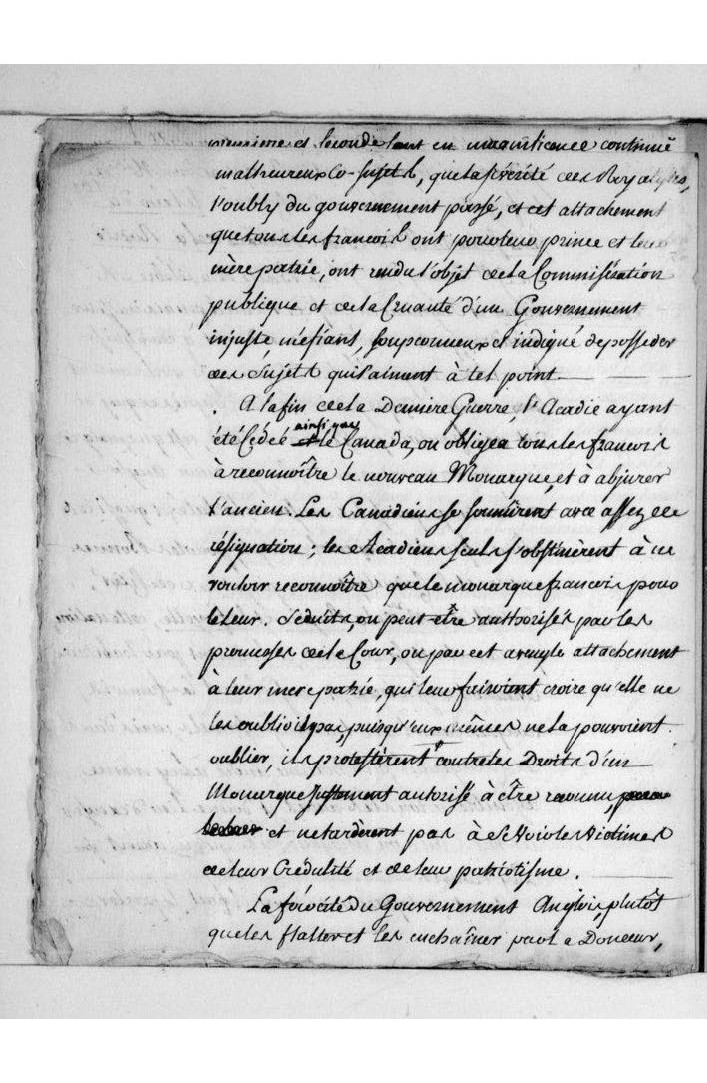 première et seconde sont en magnificence continuë
malheureux Co-sujets, que la sévérité des Royalistes,
l'oubly du gouvernement passé, et cet attachement
que tous les francois ont pour leur prince et leur
mère patrie, ont rendu l'objet de la Commisération
publique et de la Cruauté d'un Gouvernement
injuste, méfiant, soupconneux et indigné de posséder
des Sujets qui l'aiment à tel point
A la fin de la Dernière Guerre, l'Acadie ayant
été Cédée ainsi que le Canada, on obligea tous les francois
à reconnoître le nouveau Monarque, et à abjurer
l'ancien. Les Canadiens se soumirent avec assez de
résignation ; les Acadiens seuls s'obstinèrent à ne
vouloir reconnoître que le monarque francois pour
le leur. Séduits, ou peut être authorisés par les
promesses de la Cour, ou par cet aveugle attachement
à leur mere patrie, qui leur faisoient croire qu'elle ne
les oublioit pas, puisqu'eux mêmes ne la pouvoient
oublier, ils protestèrent contre les Droits d'un
Monarque justement autorisé à être reconnu,
et ne tardèrent pas à se Voir les Victimes
de leur Crédulité et de leur patriotisme.
La férocité du Gouvernement Anglois, plutôt
que les flatter et les enchaîner par la Douceur,